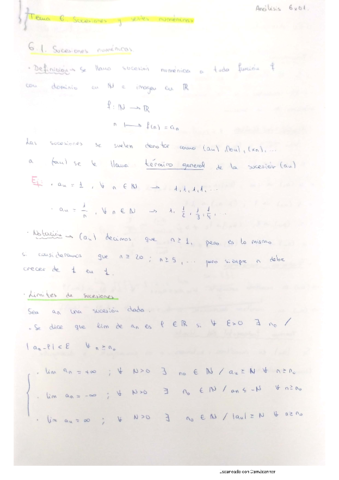 Análisis Real
Tema 6 Sucesiones y series numéricas
6.1. Sucesiones numéricas
· Definición → Se llama sucesión numérica a toda función f
con dominio en ℕ e imagen en ℝ
f: ℕ → ℝ
n ⟼ f(n) = an
Las sucesiones se suelen denotar como (an), (bn), (xn), ...
a f(n) se le llama término general de la sucesión (an)
Ej: · an = 1, ∀ n ∈ ℕ → 1, 1, 1, 1, ...
· an = 1/n, ∀ n ∈ ℕ → 1, 1/2, 1/3, 1/4, ...
· Notación → (an) decimos que n ≥ 1, pero es lo mismo
si consideramos que n ≥ 20; n ≥ 5, ... pero siempre n debe
crecer de 1 en 1.
Límites de sucesiones
Sea an una sucesión dada.
· Se dice que lim de an es l ∈ ℝ si ∀ ε>0 ∃ n0 /
|an - l| < ε ∀ n ≥ n0
· lim an = +∞ ; ∀ N>0 ∃ n0 ∈ ℕ / an ≥ N ∀ n ≥ n0
· lim an = -∞ ; ∀ N>0 ∃ n0 ∈ ℕ / an ≤ -N ∀ n ≥ n0
· lim an = ∞ ; ∀ N>0 ∃ n0 ∈ ℕ / |an| ≥ N ∀ n ≥ n0
Escaneado con CamScanner